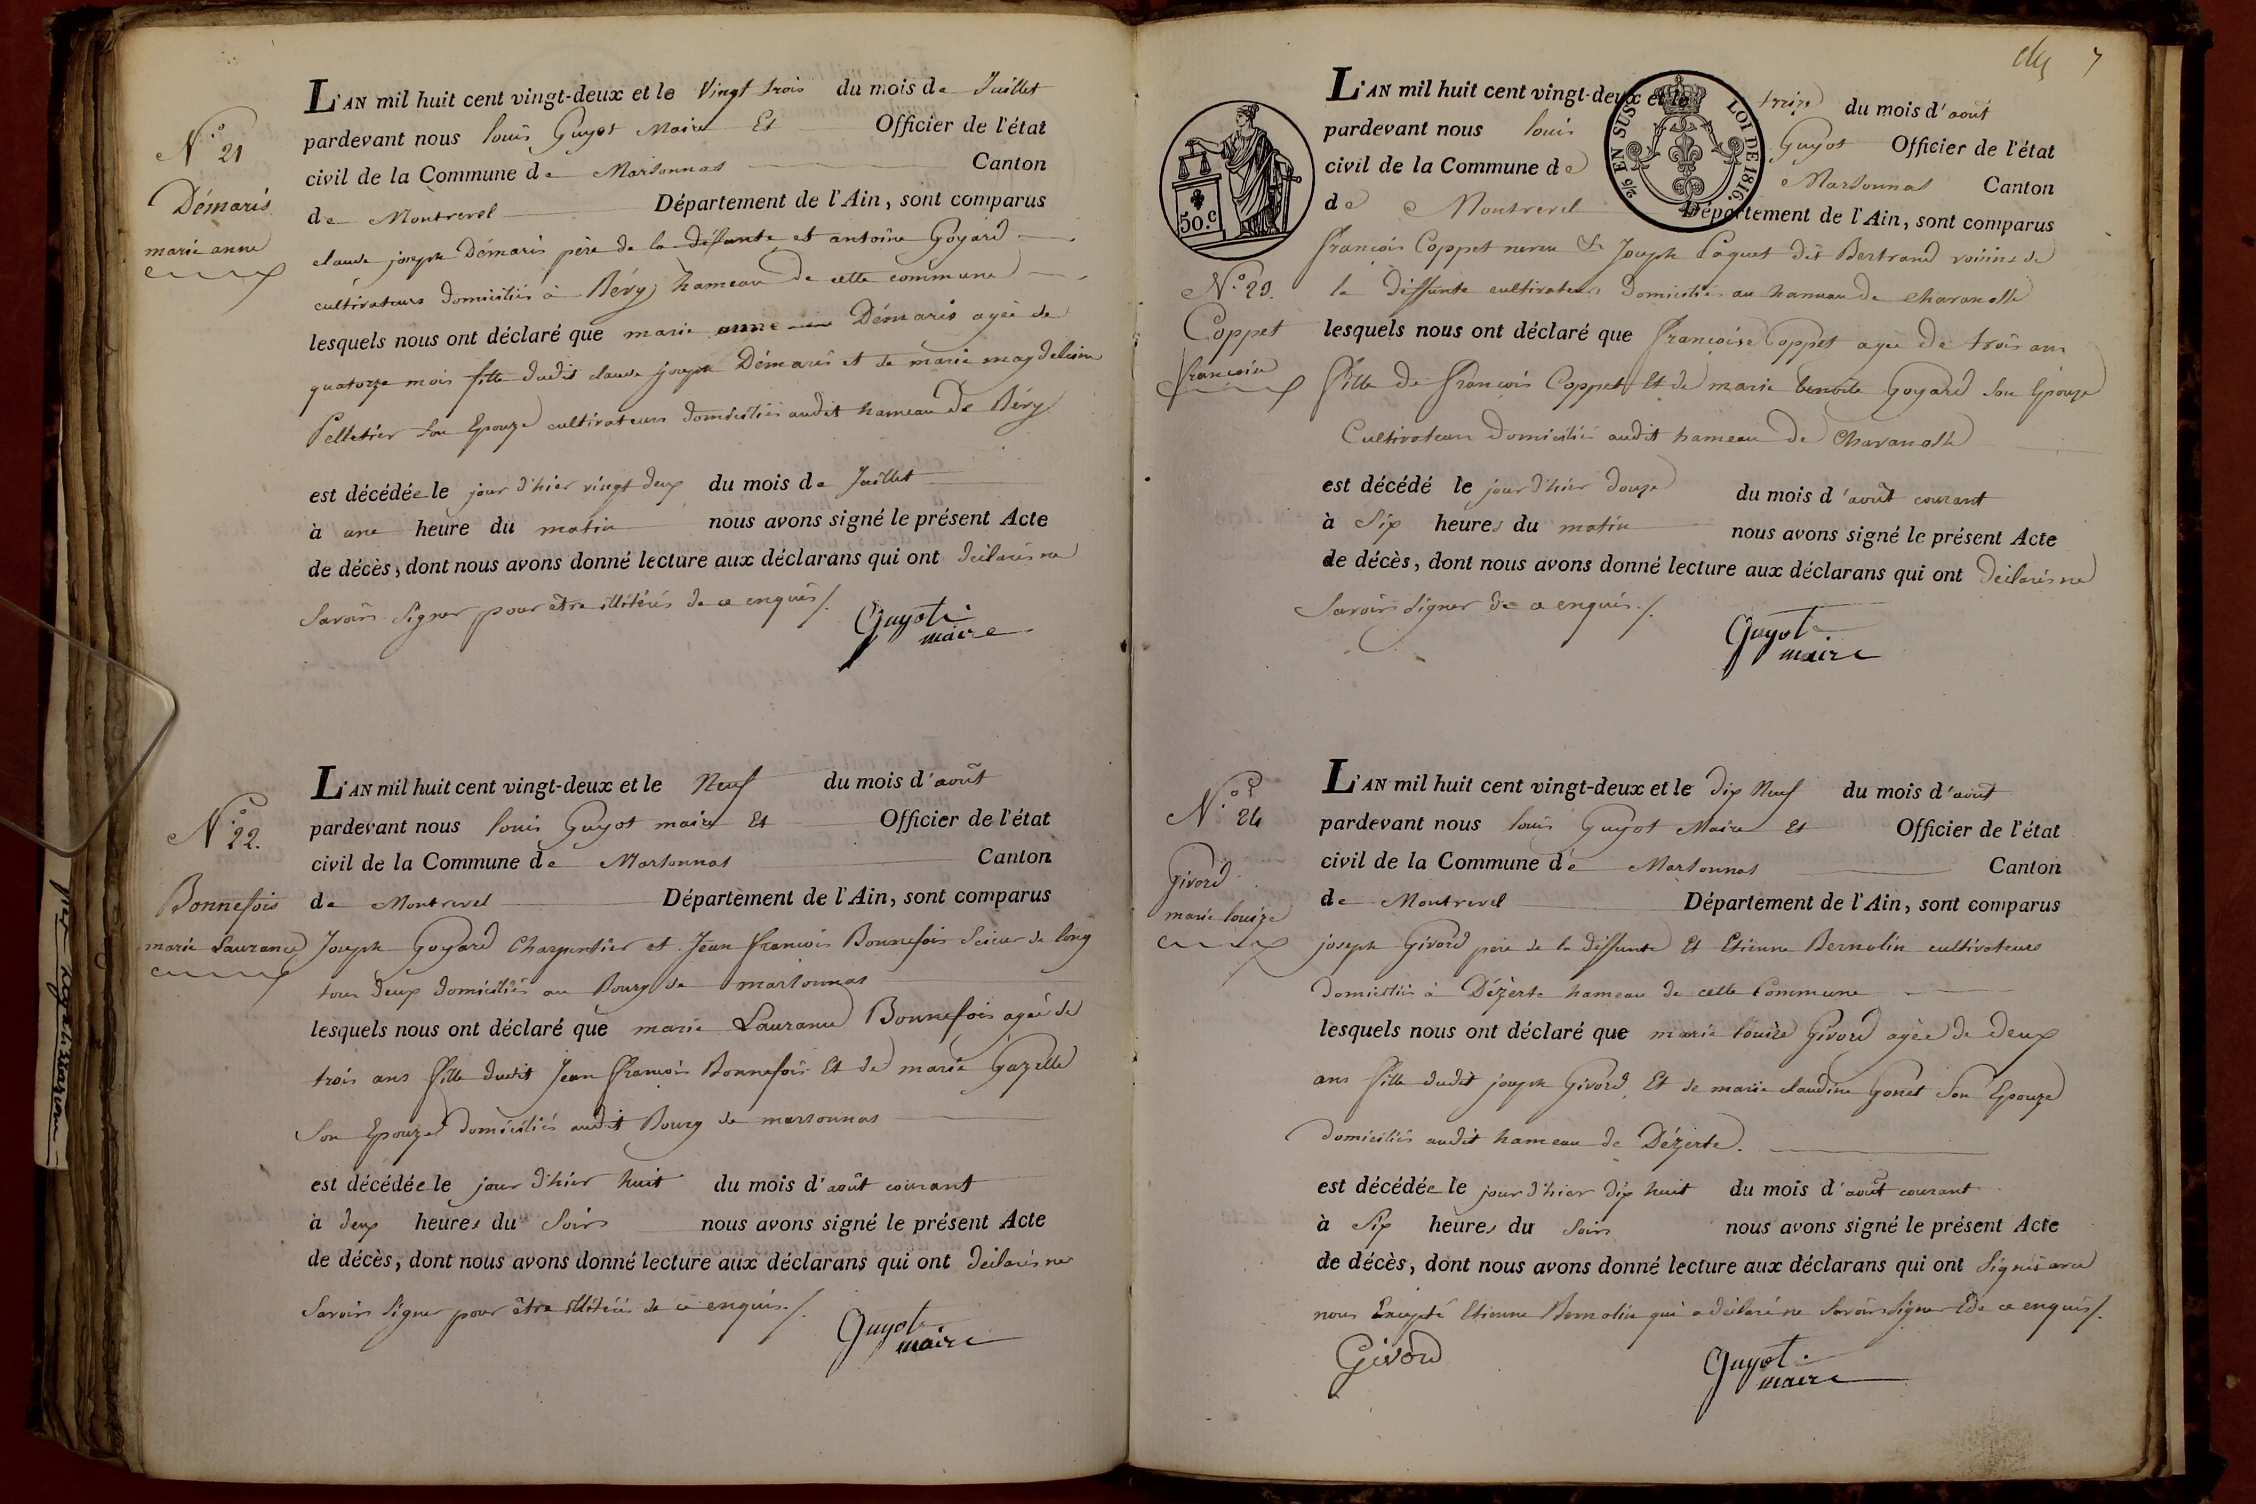 N.° 21
Démaris
marie anne
L'AN mil huit cent vingt-deux et le Vingt trois du mois de Juillet
pardevant nous louis Guyot Maire Et Officier de l'état
civil de la Commune de Marsonnas Canton
de Montrevel Département de l'Ain, sont comparus
claude joseph Démaris père de la défunte et antoine Goyard
cultivateurs domiciliés à Béry hameau de cette commune
lesquels nous ont déclaré que marie anne Démaris agée de
quatorze mois fille dudit claude joseph Démaris et de marie magdeleine
Pelletier son Epouze cultivateurs domiciliés audit hameau de Béry
est décédée le jour d'hier vingt deux du mois de Juillet
à une heure du matin nous avons signé le présent Acte
de décès, dont nous avons donné lecture aux déclarans qui ont déclarés ne
Savoir Signer pour être illitérés de ce enquis /.
Guyot
maire
N.° 22.
Bonnefois
marie Laurance
L'AN mil huit cent vingt-deux et le Neuf du mois d'août
pardevant nous louis Guyot maire Et Officier de l'état
civil de la Commune de Marsonnas Canton
de Montrevel Département de l'Ain, sont comparus
Joseph Goyard Charpentier et Jean françois Bonnefois Scieur de long
tous deux domiciliés au Bourg de marsonnas
lesquels nous ont déclaré que marie Laurance Bonnefois agée de
trois ans fille dudit Jean françois Bonnefois Et de marie Gazelle
Son Epouze domiciliés audit Bourg de marsonnas
est décédée le jour d'hier huit du mois d'août courant
à deux heures du Soir nous avons signé le présent Acte
de décès, dont nous avons donné lecture aux déclarans qui ont déclarés ne
Savoir Signer pour être illitérés de ce enquis /.
Guyot
maire
7
50.c
2/6 EN SUS
LOI DE 1816.
N.° 23.
Coppet
françoise
L'AN mil huit cent vingt-deux et le treize du mois d'août
pardevant nous louis Guyot Officier de l'état
civil de la Commune de Marsonnas Canton
de Montrevel Département de l'Ain, sont comparus
françois Coppet neveu & Joseph Paquet dit Bertrand voisins de
la deffunte cultivateurs domiciliés au hameau de Charanolle
lesquels nous ont déclaré que françoise Coppet agée de trois ans
fille de françois Coppet Et de marie benoite Goyard son Epouze
Cultivateurs domiciliés audit hameau de Charanolle
est décédé le jour d'hier douze du mois d'août courant
à Six heures du matin nous avons signé le présent Acte
de décès, dont nous avons donné lecture aux déclarans qui ont déclarés ne
Savoir Signer de ce enquis /.
Guyot
maire
N.° 24
Givord
marie louize
L'AN mil huit cent vingt-deux et le dix Neuf du mois d'août
pardevant nous louis Guyot Maire Et Officier de l'état
civil de la Commune de Marsonnas Canton
de Montrevel Département de l'Ain, sont comparus
joseph Givord père de la deffunte Et Etienne Bernolin cultivateurs
domiciliés à Dézerte hameau de cette Commune
lesquels nous ont déclaré que marie louize Givord agée de deux
ans fille dudit joseph Givord Et de marie claudine Gonet Son Epouze
domiciliés audit hameau de Dézerte.
est décédée le jour d'hier dix huit du mois d'août courant
à Six heures du Soir nous avons signé le présent Acte
de décès, dont nous avons donné lecture aux déclarans qui ont Signés avec
nous Excepté Etienne Bernolin qui a déclaré ne Savoir Signer de ce enquis /.
Givord
Guyot
maire